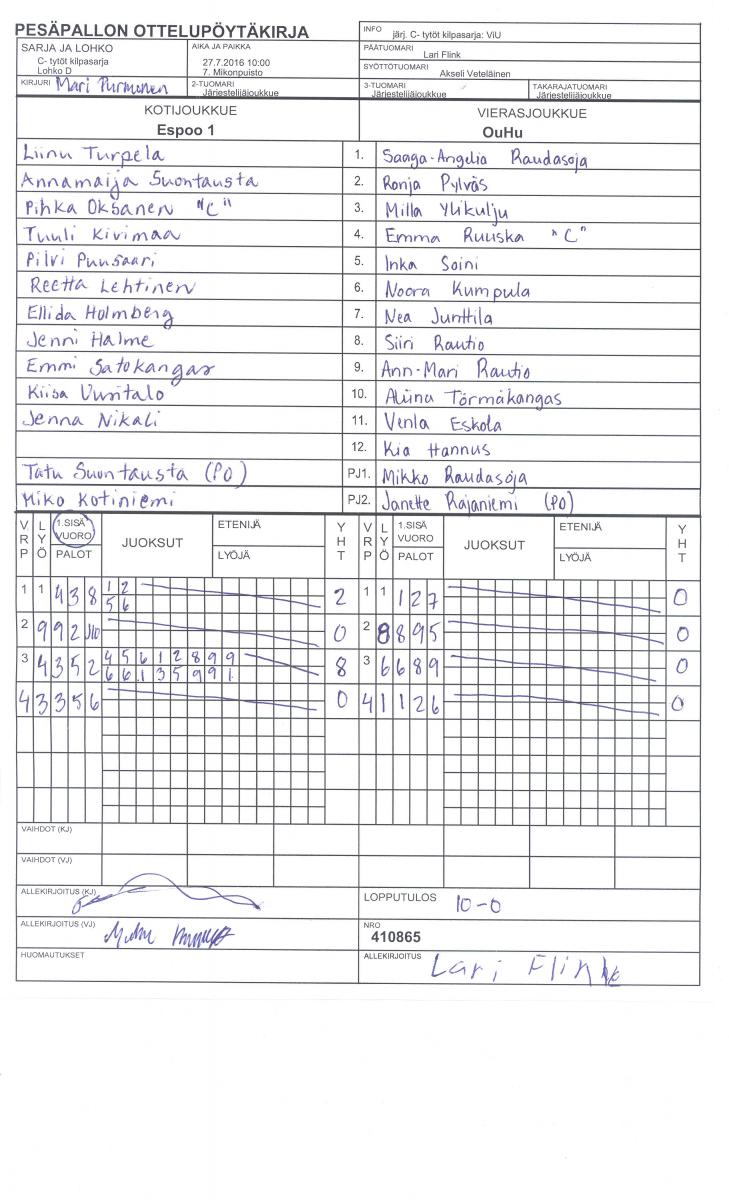 PESÄPALLON OTTELUPÖYTÄKIRJA
INFO järj. C- tytöt kilpasarja: ViU
SARJA JA LOHKO
C- tytöt kilpasarja
Lohko D
AIKA JA PAIKKA
27.7.2016 10:00
7. Mikonpuisto
PÄÄTUOMARI
Lari Flink
SYÖTTÖTUOMARI
Akseli Veteläinen
KIRJURI Mari Purmonen
2-TUOMARI
Järjestelijäjoukkue
3-TUOMARI
Järjestelijäjoukkue
TAKARAJATUOMARI
Järjestelijäjoukkue
KOTIJOUKKUE VIERASJOUKKUE
Espoo 1 OuHu
Liinu Turpela 1. Saaga-Angelia Raudasoja
Annamaija Suontausta 2. Ronja Pylväs
Pihka Oksanen "C" 3. Milla Ylikulju
Tuuli Kivimaa 4. Emma Ruuska "C"
Pilvi Puusaari 5. Inka Soini
Reetta Lehtinen 6. Noora Kumpula
Ellida Holmberg 7. Nea Junttila
Jenni Halme 8. Siiri Rautio
Emmi Satokangas 9. Ann-Mari Rautio
Kiisa Uusitalo 10. Aliina Törmäkangas
Jenna Nikali 11. Venla Eskola
12. Kia Hannus
Tatu Suontausta (PO) PJ1. Mikko Raudasoja
Miko Kotiniemi PJ2. Janette Rajaniemi (PO)
VRP LYÖ 1.SISÄ VUORO PALOT JUOKSUT ETENIJÄ LYÖJÄ YHT VRP LYÖ 1.SISÄ VUORO PALOT JUOKSUT ETENIJÄ LYÖJÄ YHT
1 1 4 3 8 1 2 2 1 1 1 2 7 0
5 6
2 9 9 2 0 2 8 8 9 5 0
3 4 3 5 2 4 5 6 1 2 8 9 9 8 3 6 6 8 9 0
6 6 1 3 5 9 9 1
4 3 3 5 6 0 4 1 1 2 6 0
VAIHDOT (KJ)
VAIHDOT (VJ)
ALLEKIRJOITUS (KJ)
LOPPUTULOS 10-0
ALLEKIRJOITUS (VJ)
NRO
410865
HUOMAUTUKSET
ALLEKIRJOITUS Lari Flink